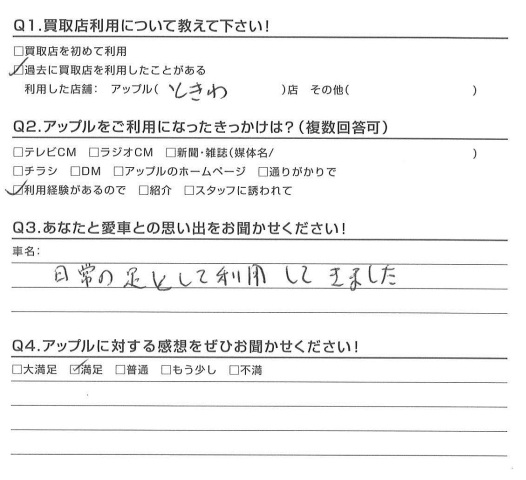 Q1.買取店利用について教えて下さい!
□買取店を初めて利用
☑過去に買取店を利用したことがある
利用した店舗: アップル( ときわ )店 その他( )
Q2.アップルをご利用になったきっかけは?(複数回答可)
□テレビCM □ラジオCM □新聞・雑誌(媒体名/ )
□チラシ □DM □アップルのホームページ □通りがかりで
☑利用経験があるので □紹介 □スタッフに誘われて
Q3.あなたと愛車との思い出をお聞かせください!
車名:
日常の足として利用してきました
Q4.アップルに対する感想をぜひお聞かせください!
□大満足 ☑満足 □普通 □もう少し □不満